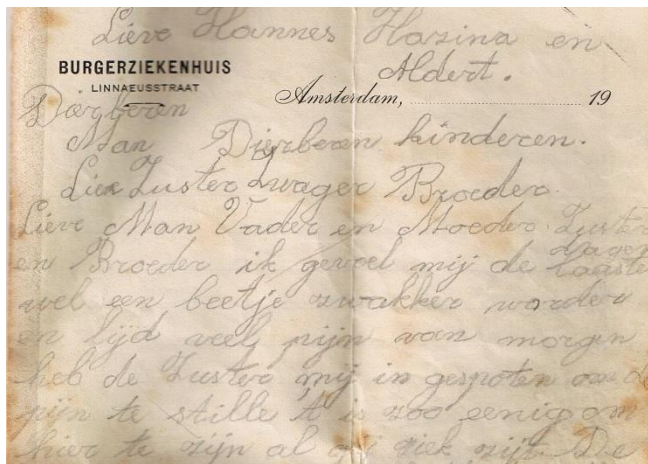 Lieve Hannes Hazina en
Aldert.
BURGERZIEKENHUIS
LINNAEUSSTRAAT
Amsterdam, 19
Dierberen
Man Dierberen kinderen.
Zuster Zwager Broeder.
Lieve Man Vader en Moeder. Zuster
en Broeder ik gevoel mij de laaste
dagen
wel een beetje zwakker worden
en lijd veel pijn van morgen
heb de Zuster mij in gespoten om de
pijn te stille 't is zoo eenig om
hier te zijn al ziek zijt. De